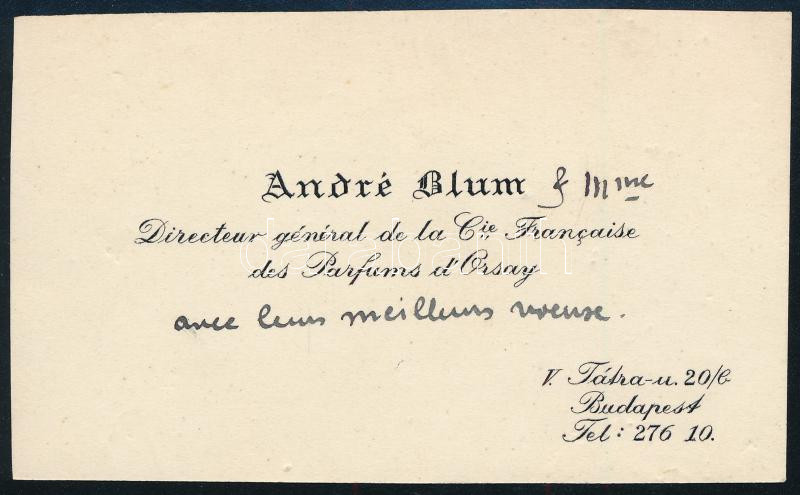 André Blum & Mme
Directeur général de la Cie Française
des Parfums d'Orsay
avec leurs meilleurs voeux.
V. Tátra-u. 20/b
Budapest
Tel: 276 10.